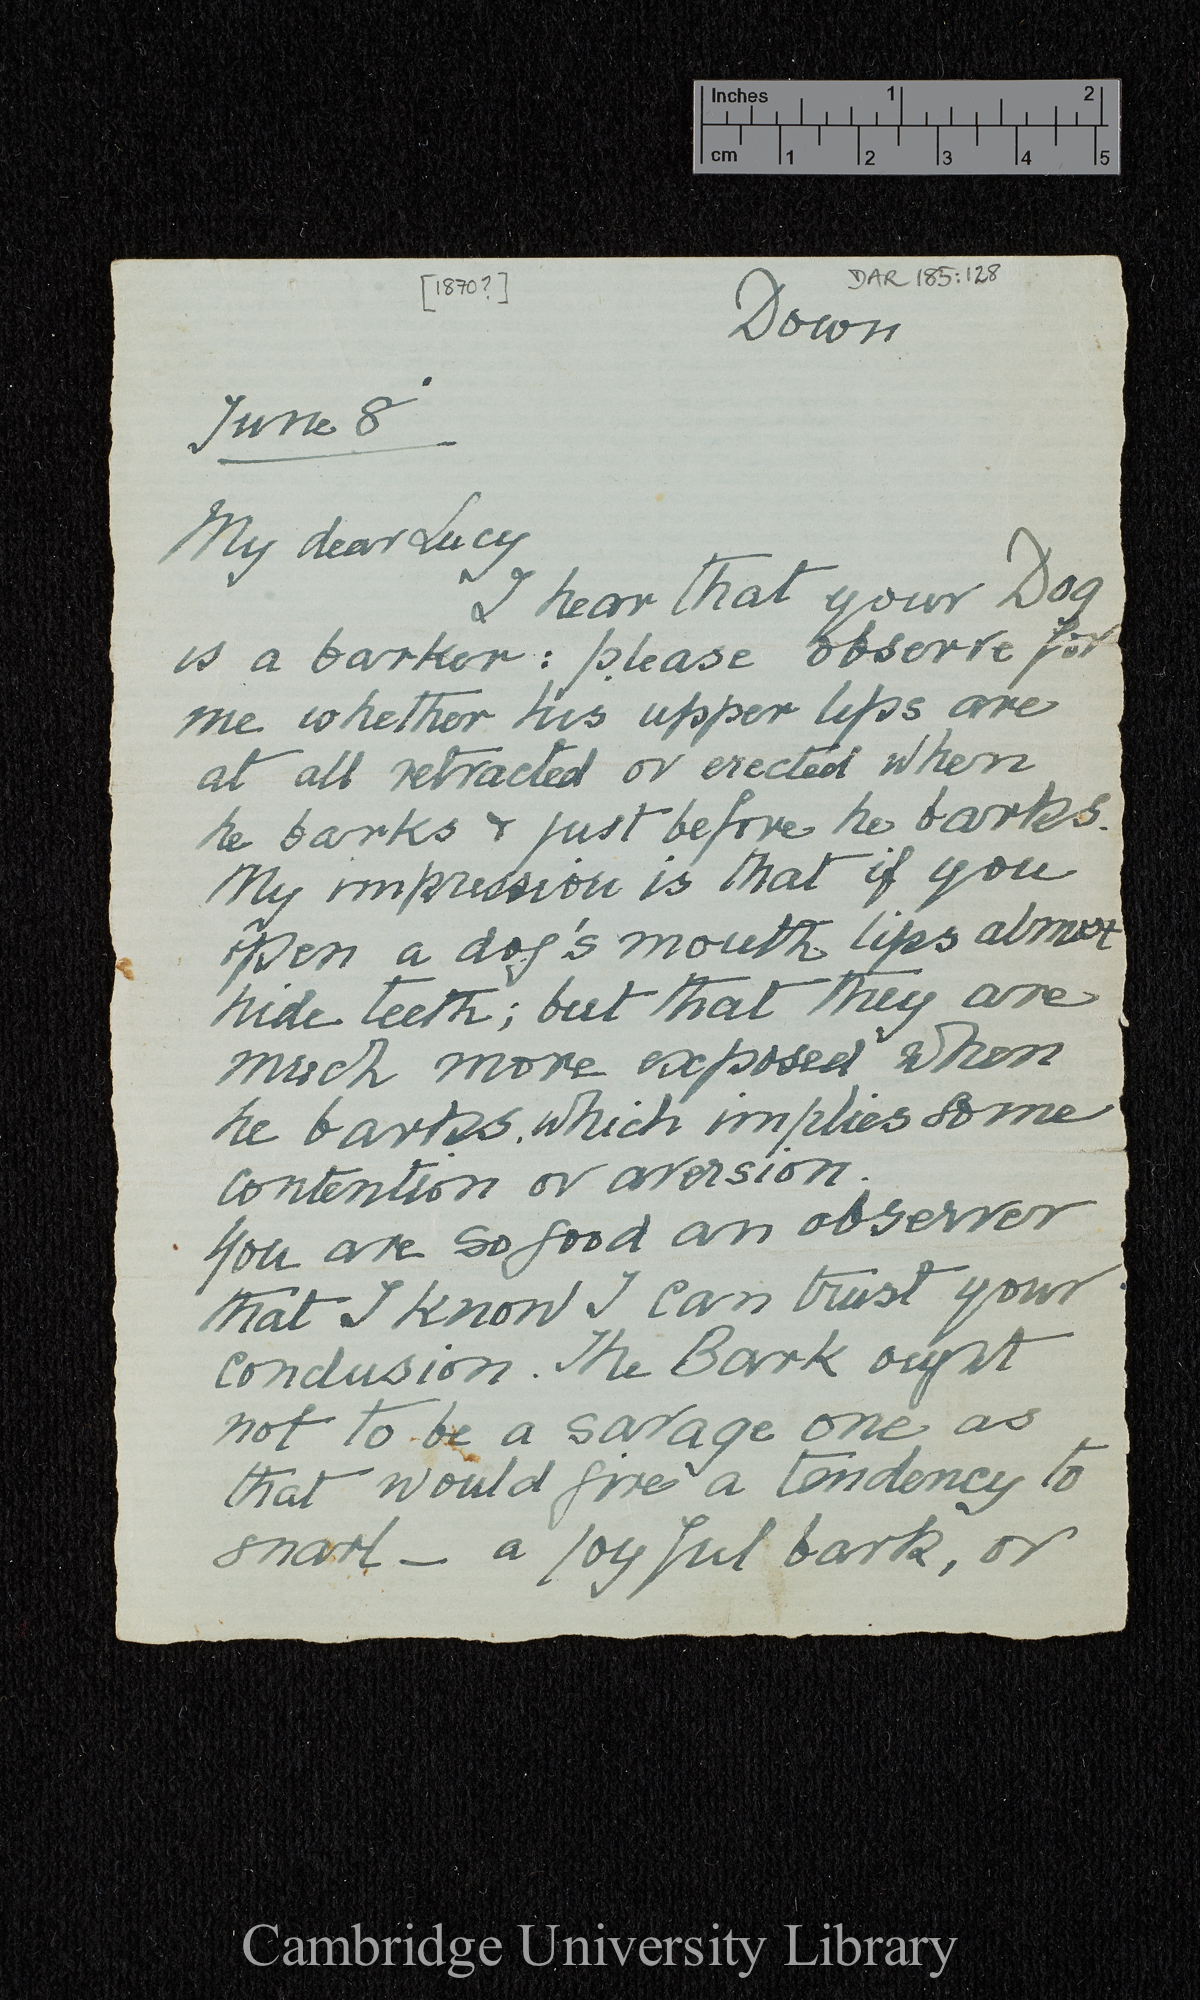 Inches 1 2
cm 1 2 3 4 5
[1870?] DAR 185:128
Down
June 8
My dear Lucy
I hear that your Dog
is a barker: please observe for
me whether his upper lips are
at all retracted or erected when
he barks & just before he barks.
My impression is that if you
open a dog's mouth lips almost
hide teeth; but that they are
much more exposed when
he barks, which implies some
contention or aversion.
You are so good an observer
that I know I can trust your
conclusion. The Bark ought
not to be a savage one as
that would give a tendency to
snarl — a joyful bark, or
Cambridge University Library